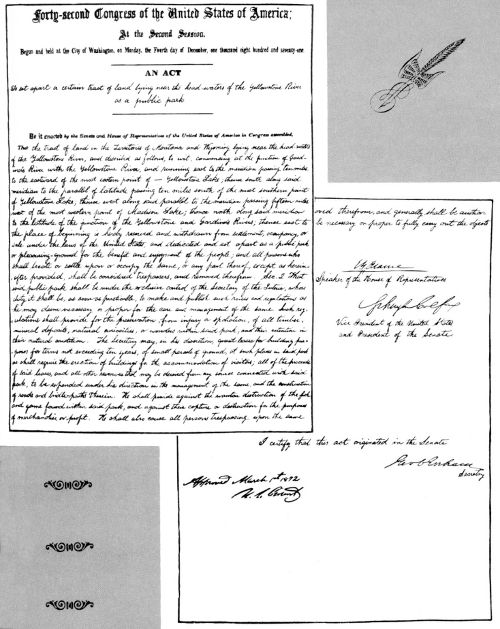 Forty-second Congress of the United States of America;
At the Second Session,
Begun and held at the City of Washington, on Monday, the Fourth day of December, one thousand eight hundred and seventy-one.
AN ACT
To set apart a certain tract of land lying near the head-waters of the Yellowstone River
as a public park
Be it enacted by the Senate and House of Representatives of the United States of America in Congress assembled,
That the tract of land in the Territories of Montana and Wyoming lying near the head-waters
of the Yellowstone River, and described as follows, to wit, commencing at the junction of Gardi-
ner's River with the Yellowstone River, and running east to the meridian passing ten miles
to the eastward of the most eastern point of Yellowstone Lake; thence south along said
meridian to the parallel of latitude passing ten miles south of the most southern point
of Yellowstone Lake; thence west along said parallel to the meridian passing fifteen miles
west of the most western point of Madison Lake; thence north along said meridian
to the latitude of the junction of the Yellowstone and Gardiners Rivers; thence east to
the place of beginning is hereby reserved and withdrawn from settlement, occupancy, or
sale under the laws of the United States, and dedicated and set apart as a public park
or pleasuring-ground for the benefit and enjoyment of the people; and all persons who
shall locate or settle upon or occupy the same, or any part thereof, except as herein-
after provided, shall be considered trespassers, and removed therefrom. Sec. 2. That
said public park shall be under the exclusive control of the Secretary of the Interior, whose
duty it shall be, as soon as practicable, to make and publish such rules and regulations as
he may deem necessary or proper for the care and management of the same. Such reg-
ulations shall provide for the preservation, from injury or spoliation, of all timber,
mineral deposits, natural curiosities, or wonders within said park, and their retention in
their natural condition. The Secretary may, in his discretion, grant leases for building pur-
poses for terms not exceeding ten years, of small parcels of ground, at such places in said park
as shall require the erection of buildings for the accommodation of visitors; all of the proceeds
of said leases, and all other revenues that may be derived from any source connected with said
park, to be expended under his direction in the management of the same, and the construction
of roads and bridle-paths therein. He shall provide against the wanton destruction of the fish
and game found within said park, and against their capture or destruction for the purposes
of merchandise or profit. He shall also cause all persons trespassing upon the same
oved therefrom, and generally shall be author
be necessary or proper to fully carry out the objects
Speaker of the House of Representatives
Vice President of the United States
and President of the Senate
I certify that this act originated in the Senate
Secretary
Approved March 1st 1872
U. S. Grant